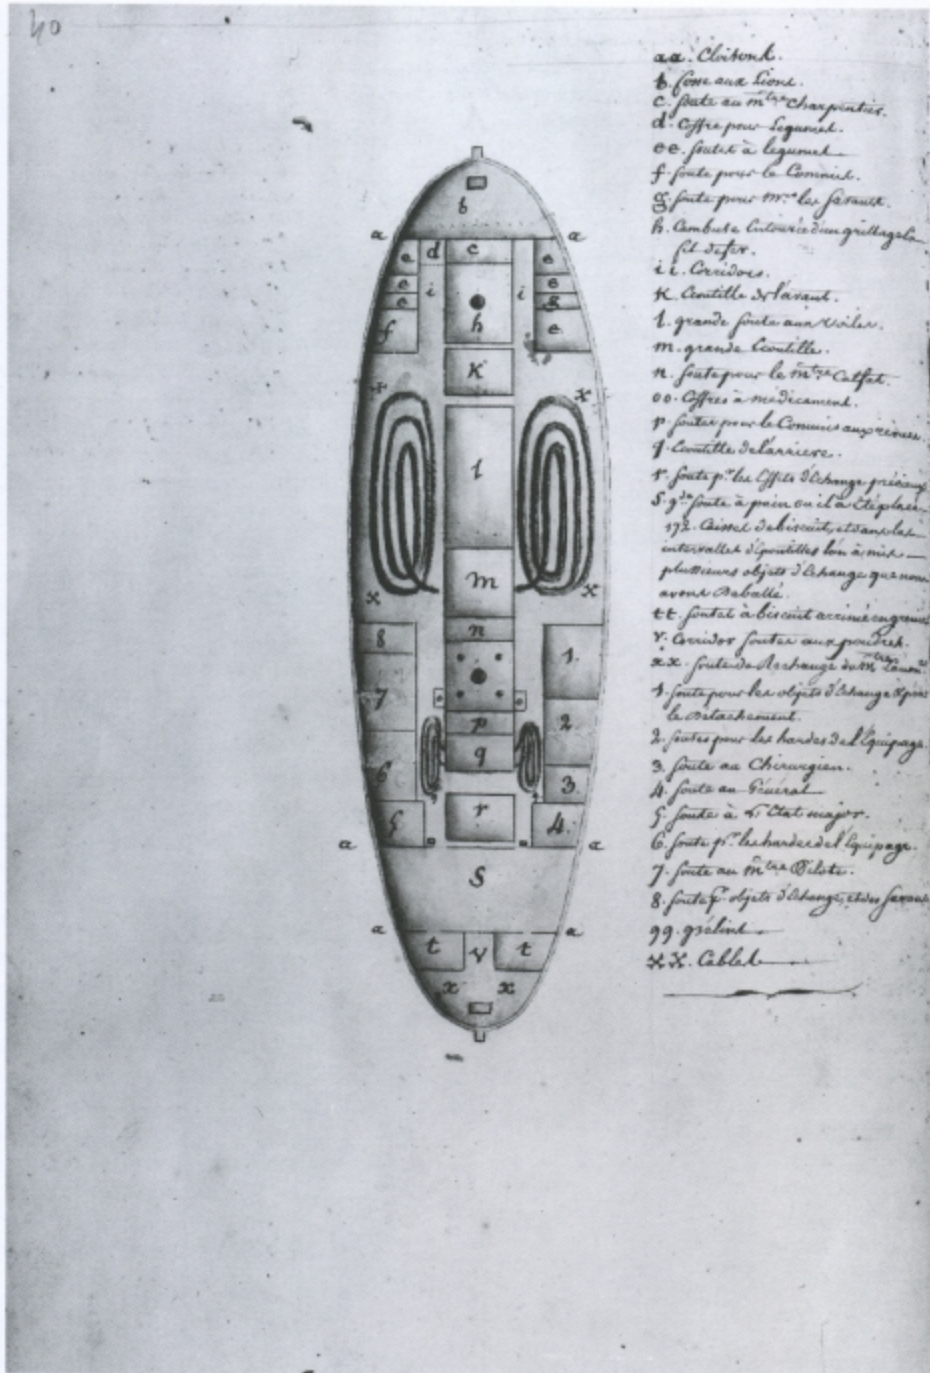 40
aa. Cloisons.
b. fosse aux Lions.
c. soute au mtre Charpentier.
d. Coffre pour Legumes.
ee. soutes à legumes
f. soute pour le Commis.
g. soute pour Mrs les savants.
h. Cambuse Entourée d'un grillage en
fil de fer.
i i. Corridors.
K. Ecoutille de l'avant.
l. grande soute aux voiles.
m. grande Ecoutille.
n. soute pour le mtre Calfat.
oo. Coffres à médicament.
p. soutes pour le Commis aux
q. Ecoutille de l'arriere.
r. soute pr les Effets d'Echange précieux
S. gde soute à pain ou il a Eté placé
172. Caisses de biscuit, et dans les
intervalles d'Epontilles l'on à mis
plusieurs objets d'Echange que nous
avons Deballé.
tt. soutes à biscuit arrimé en grenier
v. Corridor soutes aux poudres.
xx. soute de Rechange de mtre
1. soute pour les objets d'Echange &
le Detachement.
2. soutes pour les hardes de l'Equipage.
3. soute au Chirurgien.
4. soute au Général
5. soute à l'Etat major.
6. soute pr les hardes de l'Equipage.
7. soute au mtre Pilote.
8. soute pr objets d'Echange, et des savants
99. grélins
xx. Cables
b
a a
e d c e
e i i e
e g
f h e
K
x x
l
m
x x
n
8 1
7 o o
p 2
6 q 3
r
5 4
a a
S
a a
t v t
x x